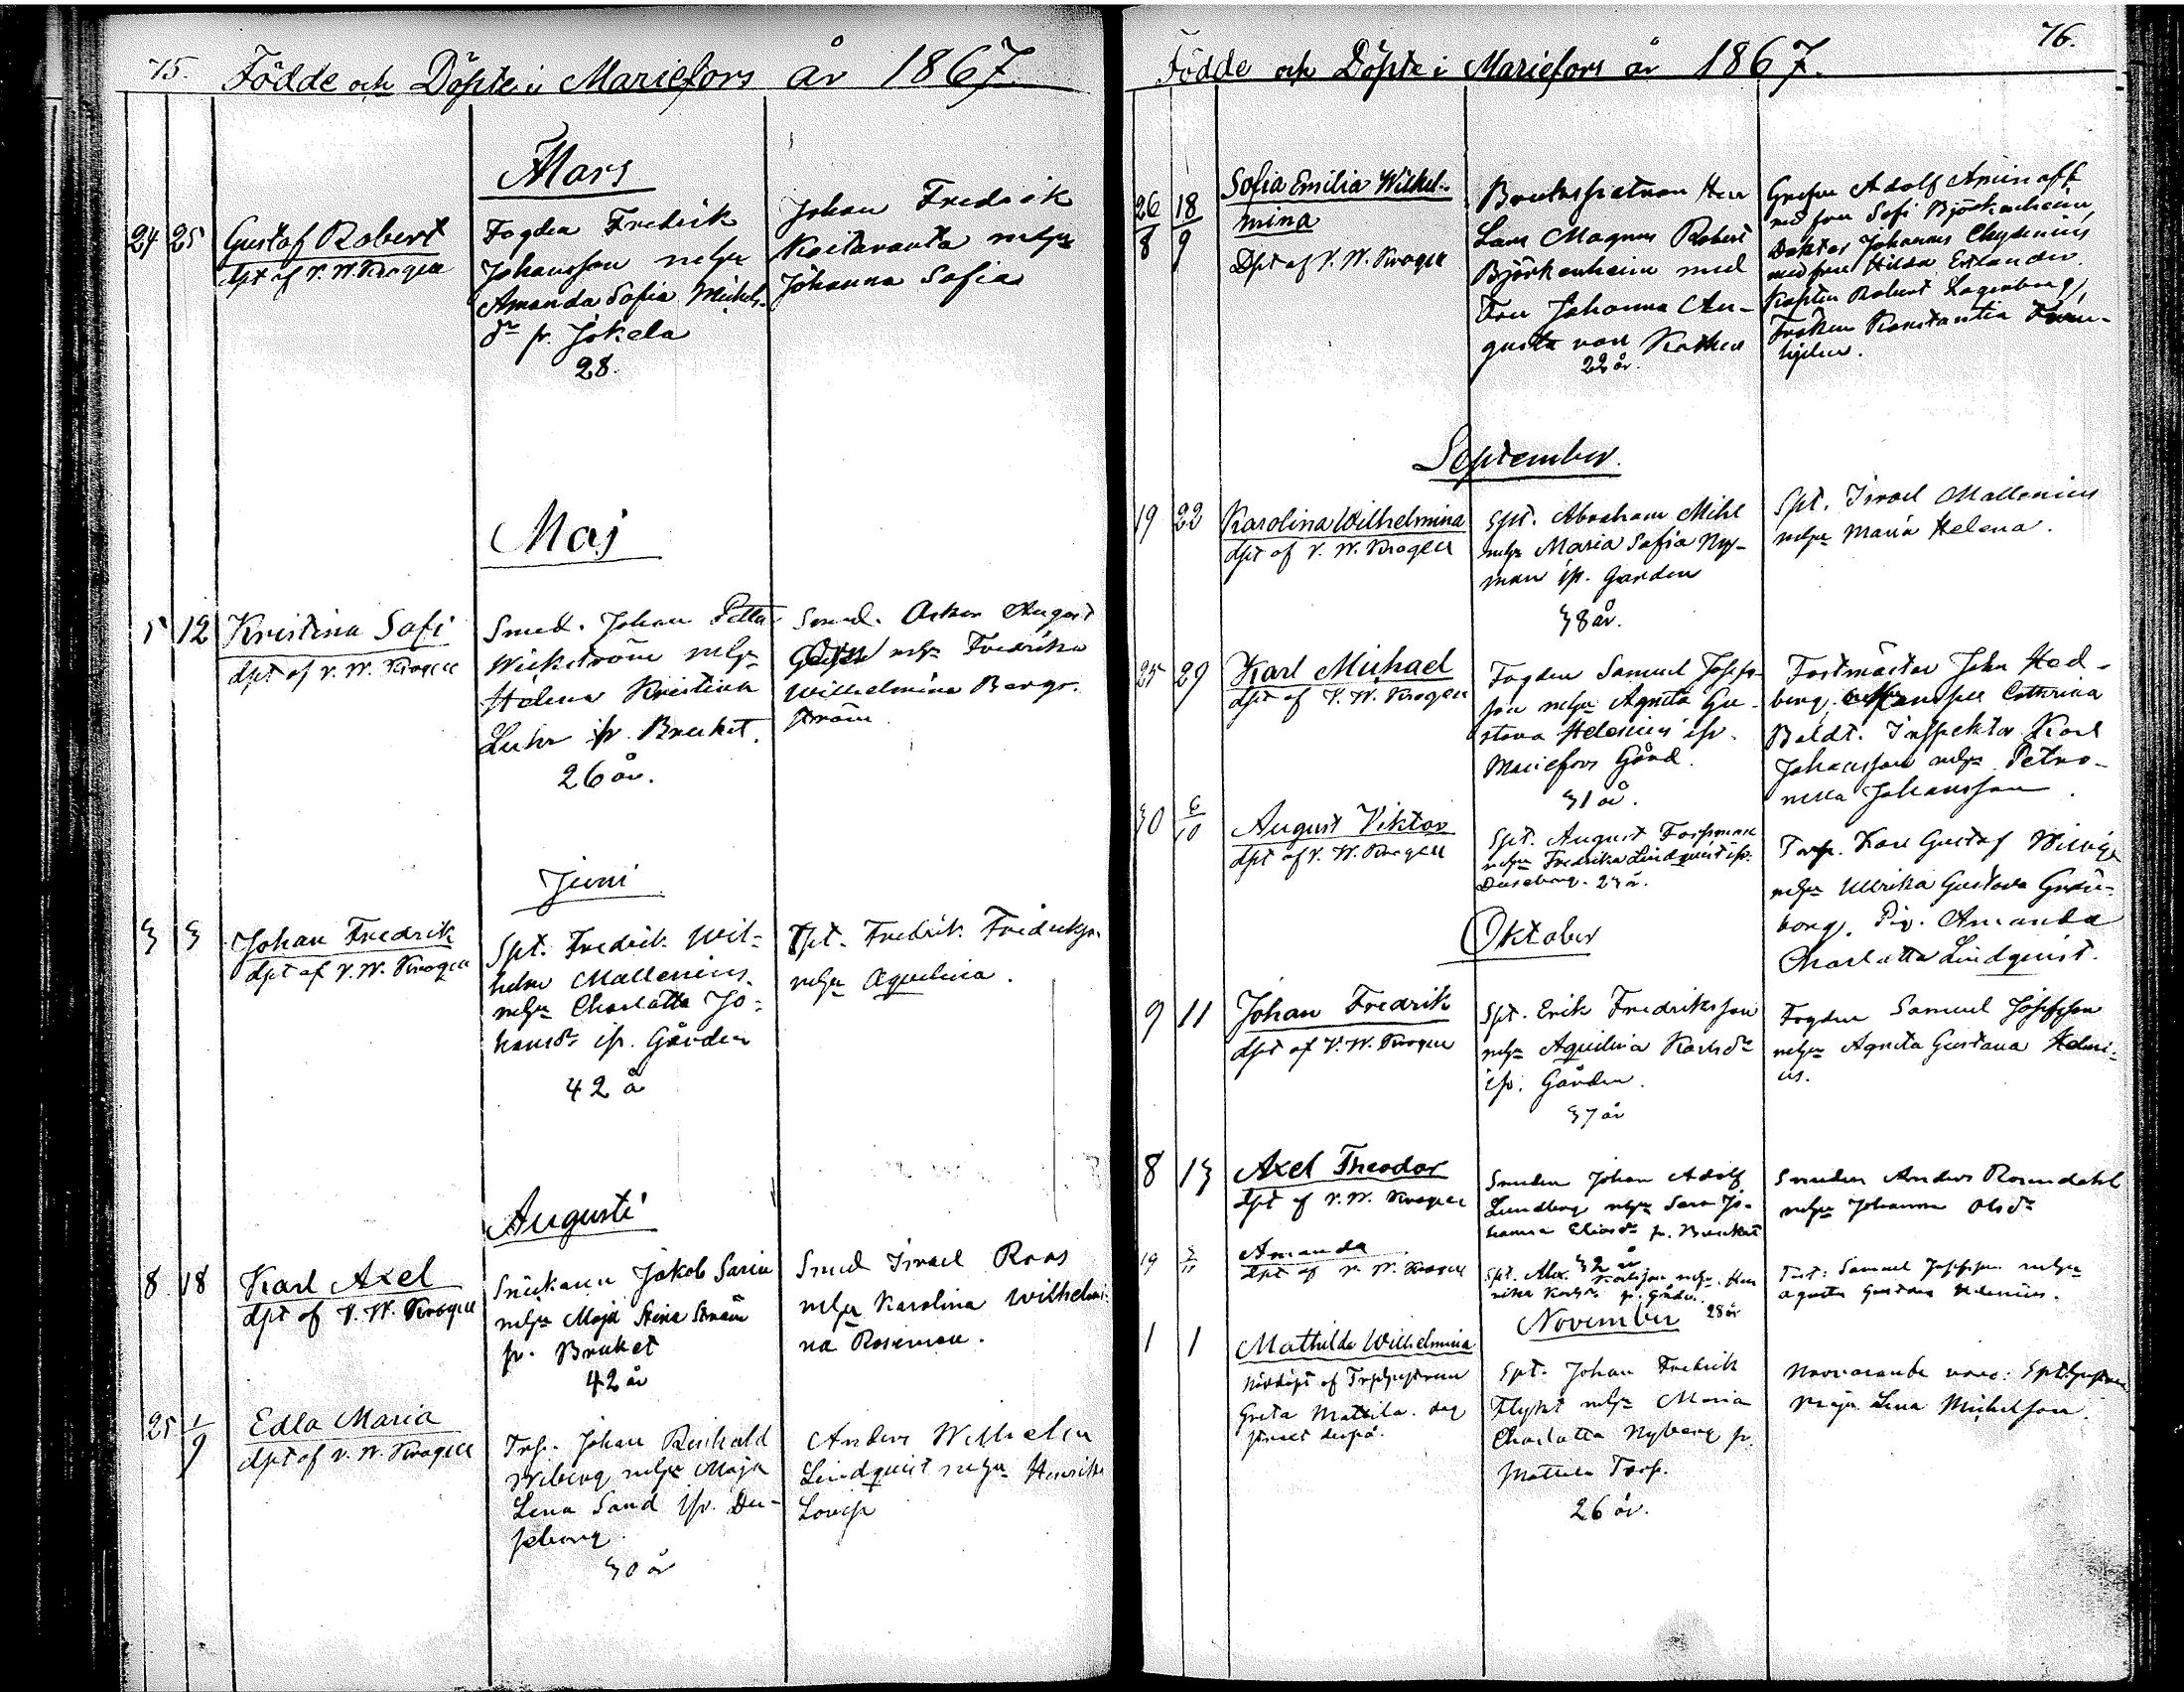 75. Födde och Döpte i Mariefors år 1867.
Mars
24 25 Gustaf Robert
dpt af V. W. Krogell
Fogden Fredrik
Johansson m hu
Amanda Sofia Michels-
dr fr. Jokela
28.
Johan Fredrik
Keitaranta m hu
Johanna Sofia
Maj
5 12 Kristina Sofi
dpt af V. W. Krogell
Smed. Johan Petter
Wickström m hu
Helena Kristina
Luhr fr. Bruket.
26 år.
Smed. Oskar August
m hu Fredrika
Wilhelmina Bergs-
tröm
Juni
3 3 Johan Fredrik
dpt af V. W. Krogell
Spt. Fredrik Wil-
helm Mallenius
m hu Charlotta Jo-
hansdr ifr. Gården
42 å
Spt. Fredrik Fredriksn.
m hu Aquilina.
Augusti
8 18 Karl Axel
dpt af V. W. Krogell
Snickarn Jakob Sarin
m hu Maja Stina Ström
fr. Bruket
42 år
Smed Israel Roos
m hu Karolina Wilhelmi-
na Roseman.
25 1/9 Edla Maria
dpt af V. W. Krogell
Trp. Johan Reinhold
Wiberg m hu Maja
Lena Sand ifr. Du-
seborg.
30 år
Anders Wilhelm
Lindquist m hu Henrika
Lovisa
76.
Födde och Döpte i Mariefors år 1867.
26/8 18/9 Sofia Emilia Wilhel-
mina
Dpt af V. W. Krogell
Brukspatron Herr
Lars Magnus Robert
Björkenheim med
Fru Johanna Au-
gusta von Kothen
22 år.
Grefve Adolf Aminoff
med fru Sofi Björkenheim,
Doktor Johannes Chydenius
med fru Hilda Erlander.
Kapten Robert Lagerborg,
Fröken Konstantia
September.
19 22 Karolina Wilhelmina
dpt af V. W. Krogell
Spt. Abraham Mihl
m hu Maria Sofia Ny-
man ifr. Gården
38 år.
Spt. Israel Mallenius
m hu Maria Helena.
25 29 Karl Michael
dpt af V. W. Krogell
Fogden Samuel Josefs-
son m hu Agneta Gu-
stava Helenius ifr.
Mariefors Gård.
31 år.
Forstmästar John Hed-
berg, Cathrina
Boldt. Inspektor Karl
Johansson m hu Petro-
nella Johansson.
30 6/10 August Viktor
dpt af V. W. Krogell
Spt. August Forsman
m hu Fredrika Lindquist ifr.
Duseborg. 23 å.
Torp. Karl Gustaf Wiberg
m hu Ulrika Gustava Grön-
borg. Pig. Amanda
Charlotta Lindquist.
Oktober
9 11 Johan Fredrik
dpt af V. W. Krogell
Spt. Erik Fredriksson
m hu Aquilina Karlsdr
ifr. Gården.
37 år
Fogden Samuel Josefsson
m hu Agneta Gustava Heleni-
us.
8 13 Axel Theodor
dpt af V. W. Krogell
Smeden Johan Adolf
Lundberg m hu Sara Jo-
hanna Eliasdr fr. Bruket
32 år
Smeden Anders Rosendahl
m hu Johanna Olsdr
19 3/11 Amanda
dpt af V. W. Krogell
Spt. Alex. Karlsson m hu Hen-
rika Karlsdr fr. Gården.
28 år
Samuel Josefsson m hu
Agneta Gustava Helenius.
November
1 1 Mathilda Wilhelmina
nöddöpt af
Greta Mattila. dog
straxt derpå.
Spt. Johan Fredrik
Flykt m hu Maria
Charlotta Nyberg fr.
Mattila Torp.
26 år.
Närvarande voro:
Maja Lena Michelsson.